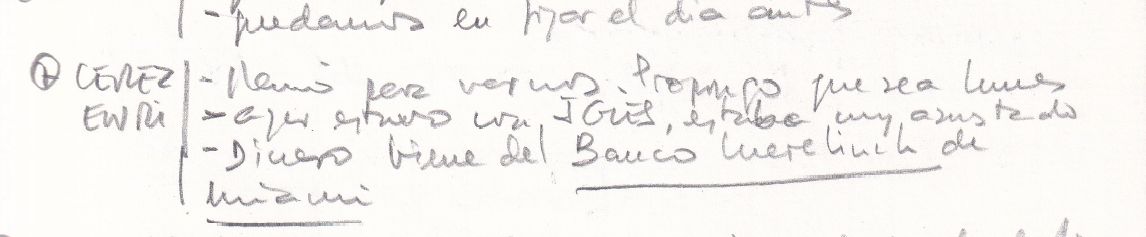 - quedamos en fijar el día antes
⊕ CEREZ | - Llamó para vernos. Propongo que sea lunes
ENRI | - ayer estuvo con JGUÉS, estaba muy asustado
- Dinero viene del Banco Merelinch de
Miami